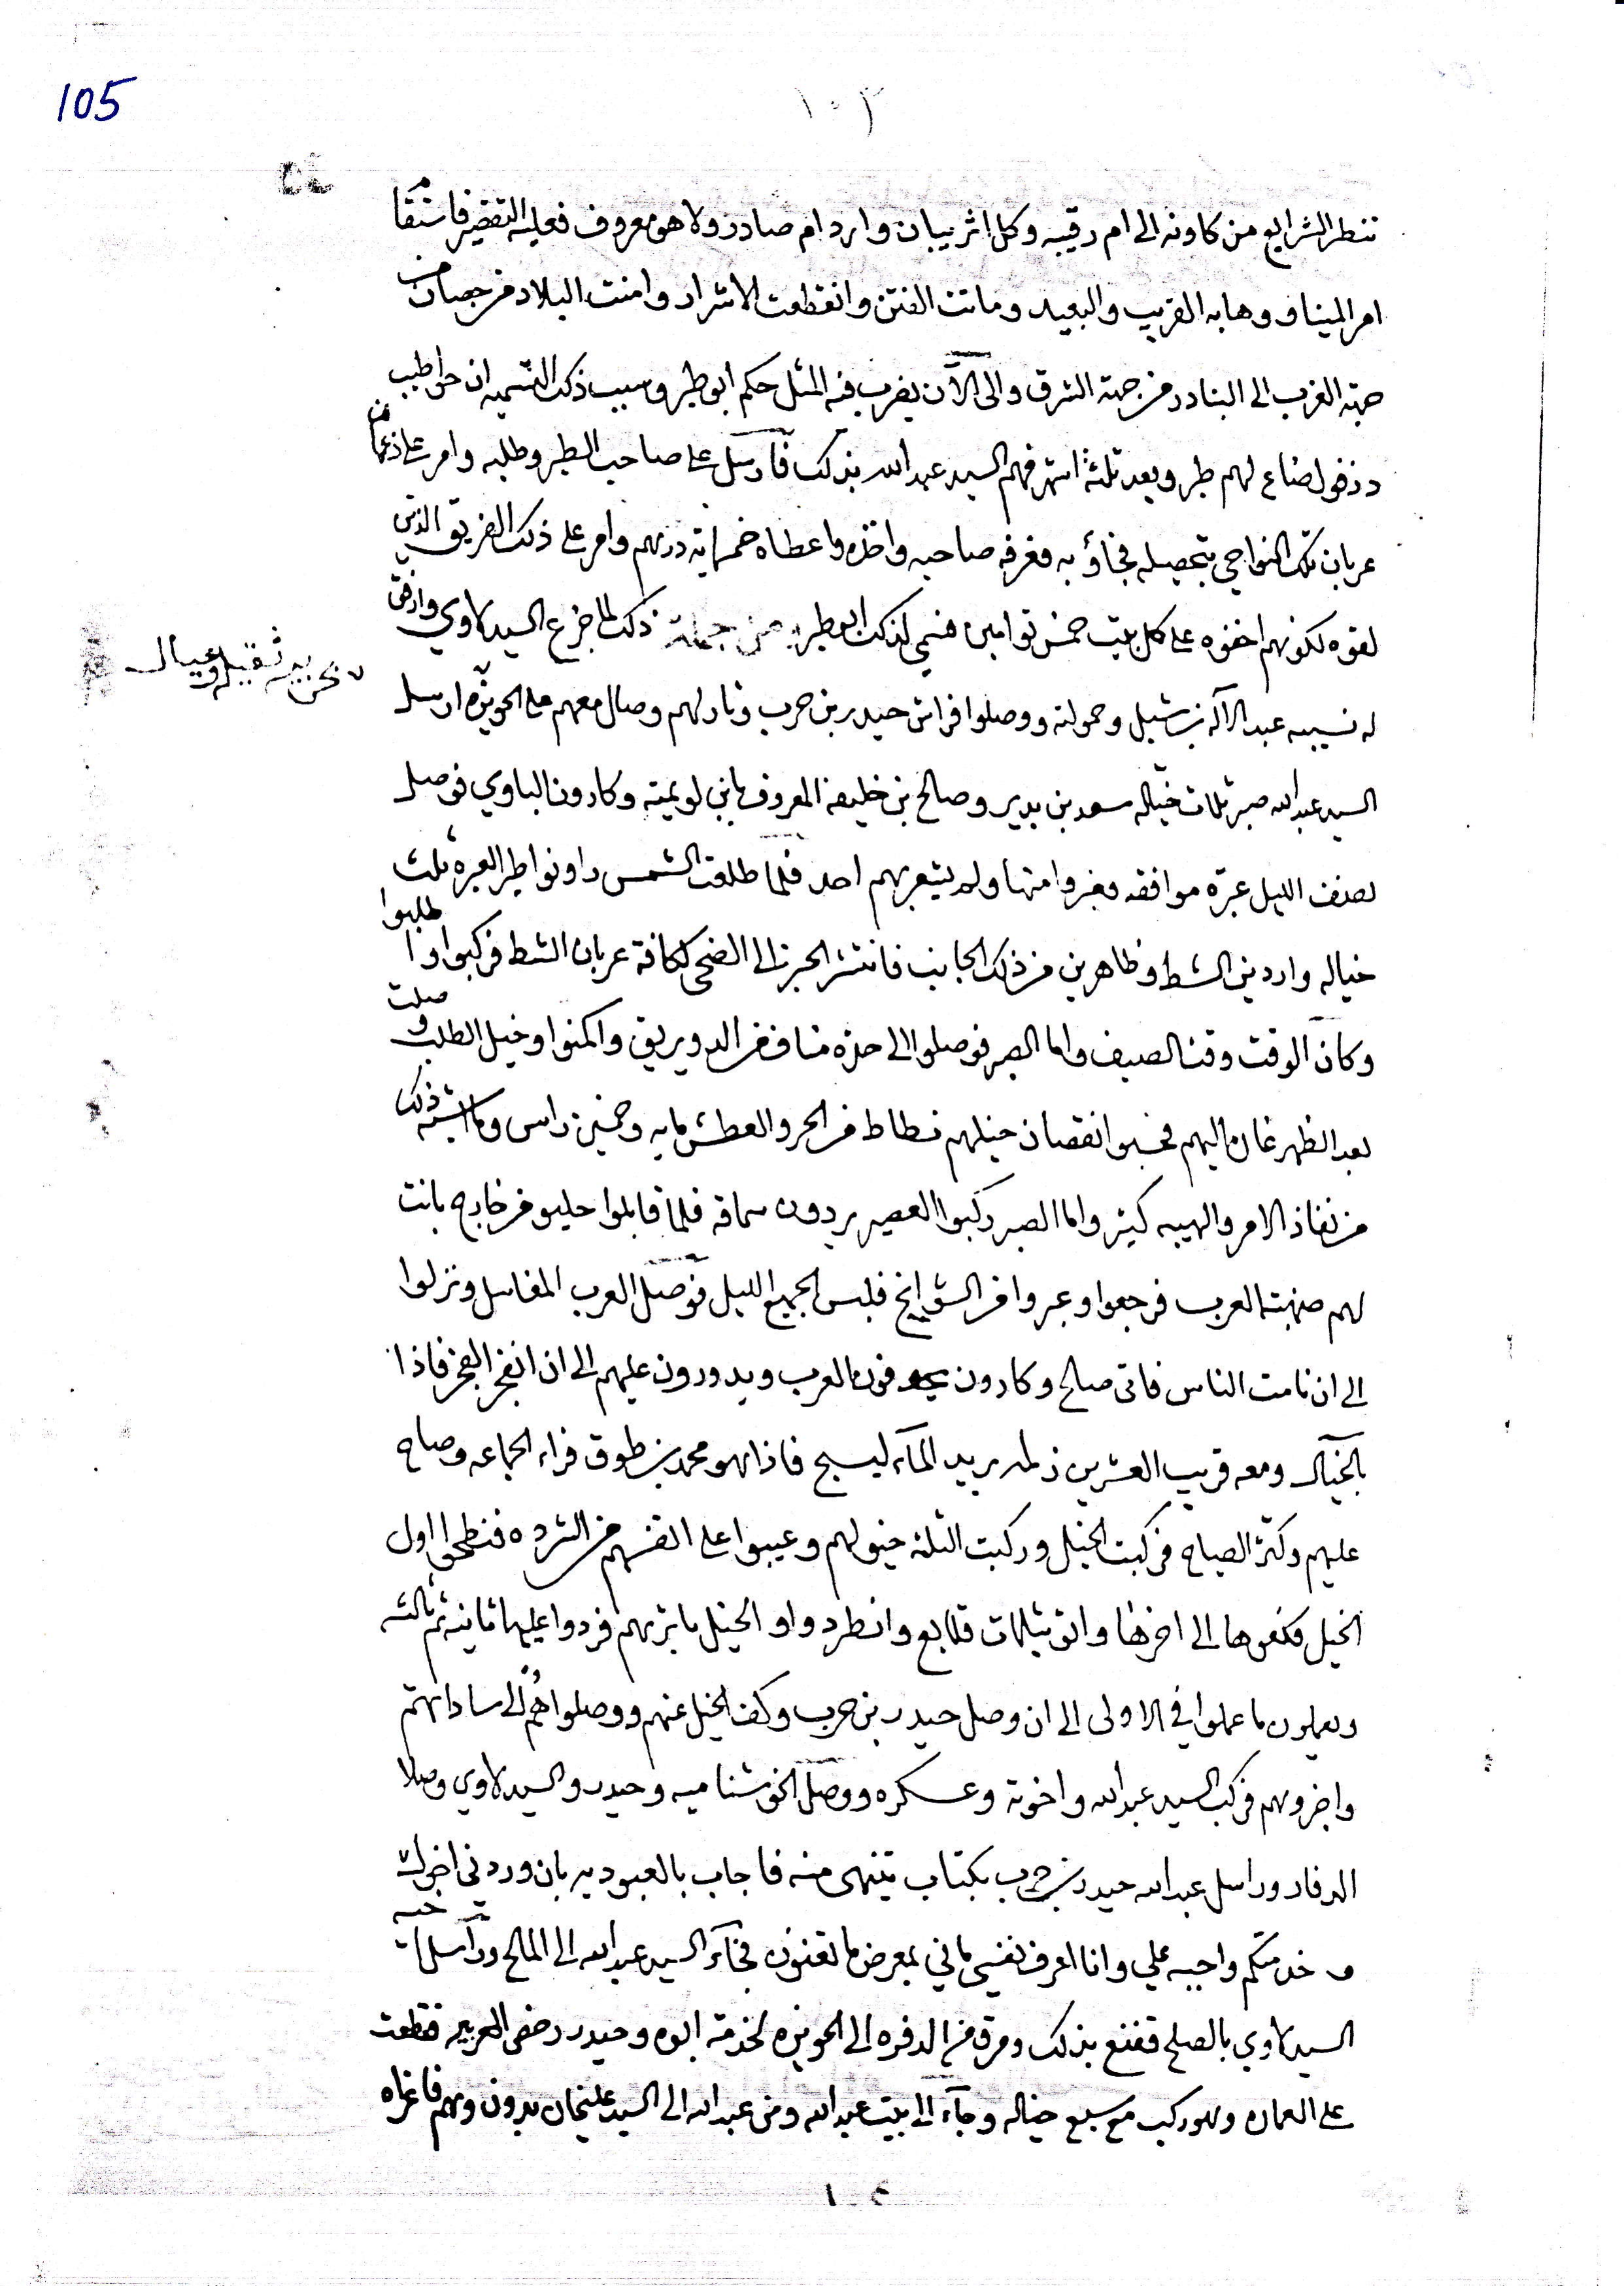 105
١٠٣
تنطر الشرايع من كاونه الى ام رقيبه وكل اثر يبان وارد ام صادر ولا هو معروف فعليه التقضير فاستقام
امر الميناو وهابه القريب والبعيد وماتت الفتن وانقطعت الاشرار وامنت البلاد من حصان من
جهة الغرب الى البنادر من جهة الشرق والى الآن يضرب فيه المثل حكم ابو طبر وسبب ذكك التسميه ان حواطيب
دزفول ضاع لهم طبر وبعد ثلثة اشهر فهم السيد عبد الله بذلك فأرسل على صاحب الطبر وطلبه وامر على
عربان تلك النواحي بتحصيله فجاؤ به فعرفه صاحبه واخذه واعطاه خمسمايه درهم وامر على ذلك الفريق الذين
لقوه لكونهم اخفوه على كل بيت خمس توامين فسمي لذلك ابو طبر من جملة ذلك لما خرج السيد لاوي وارفق
له نسيبه عبد الاآله بن شبل وحمولته ووصلوا افراش حيدر بن حرب وثار لهم وصال معهم على الحويزه ارسل
السيد عبد الله صبر ثلاث خياله سعد بن بدير وصالح بن خليفه المعروف بابن لويميه وكارون الباوي فوصل
نصف الليل عبرة موافقه فعبروا منها ولم يشعر بهم احد فلما طلعت الشمس راو نواطير العبره ثلث
خياله واردين الشط وظاهرين من ذلك الجانب فانتشر الخبر الى الضحى لكافة عربان الشط فركبوا وا طلبوا
وكان الوقت وقت الصيف واما الصبر فوصلوا الى حزة من الدويريق واكمنوا وخيل الطلب وصلت
بعد الظهر اليهم فحسبوا نقصان خيلهم من الحر والعطش مايه وخمسين راس وما اشبه ذلك
من نفاذ الامر والهيبه كثير واما الصبر ركبوا العصير يردون سماقه فلما قابلوا حليو من خارج بانت
لهم صنهبة العرب فرجعوا وعبروا من الشوايخ فلبس الجميع الليل فوصل العرب المغاسل ونزلوا
الى ان نامت الناس فاتى صالح وكارون يحوفون العرب ويدورون عليهم الى ان انفجر الفجر فاذا
بالخيال ومعه قريب العشرين زلمه يريد المآء ليسبح فاذا هو محمد بن طوق فراء الجماعه وصاح
عليهم وكثر الصياح فركبت الخيل وركبت الثلثه خيولهم وعيبوا على انفسهم من الشرده فنطحوا اول
الخيل فكفوها الى اخرها واتو بثلاث قلايع وانطردوا والخيل باثرهم فردوا عليها ثانيه ثم ثالثه
ويعملون ما عملوا في الاولى الى ان وصل حيدر بن حرب وكف الخيل عنهم ووصلوا هُم الى ساداتهم
واخبروهم فركب السيد عبد الله واخوته وعسكره ووصل الخوشناميه وحيدر والسيد لاوي وصلا
الدفار وراسل عبد الله حيدر بن حرب بكتاب يتنهى منه فاجاب بالعبوديه بان وردني اخوك
وخدمتكم واجبه علي وانا اعرف نفسي باني بمعرض ما تعفون فجآء السيد عبد الله الى المالح وراسل
السيد لاوي بالصلح فقنع بذلك ومرق من الدفره الى الحويزه لخدمة ابوه وحيدر رخص العربيه فقطعت
على العماره وهو ركب مع سبع خياله وجآء الى بيت عبد الله ومن عبد الله الى السيد عليخان بدون وهم